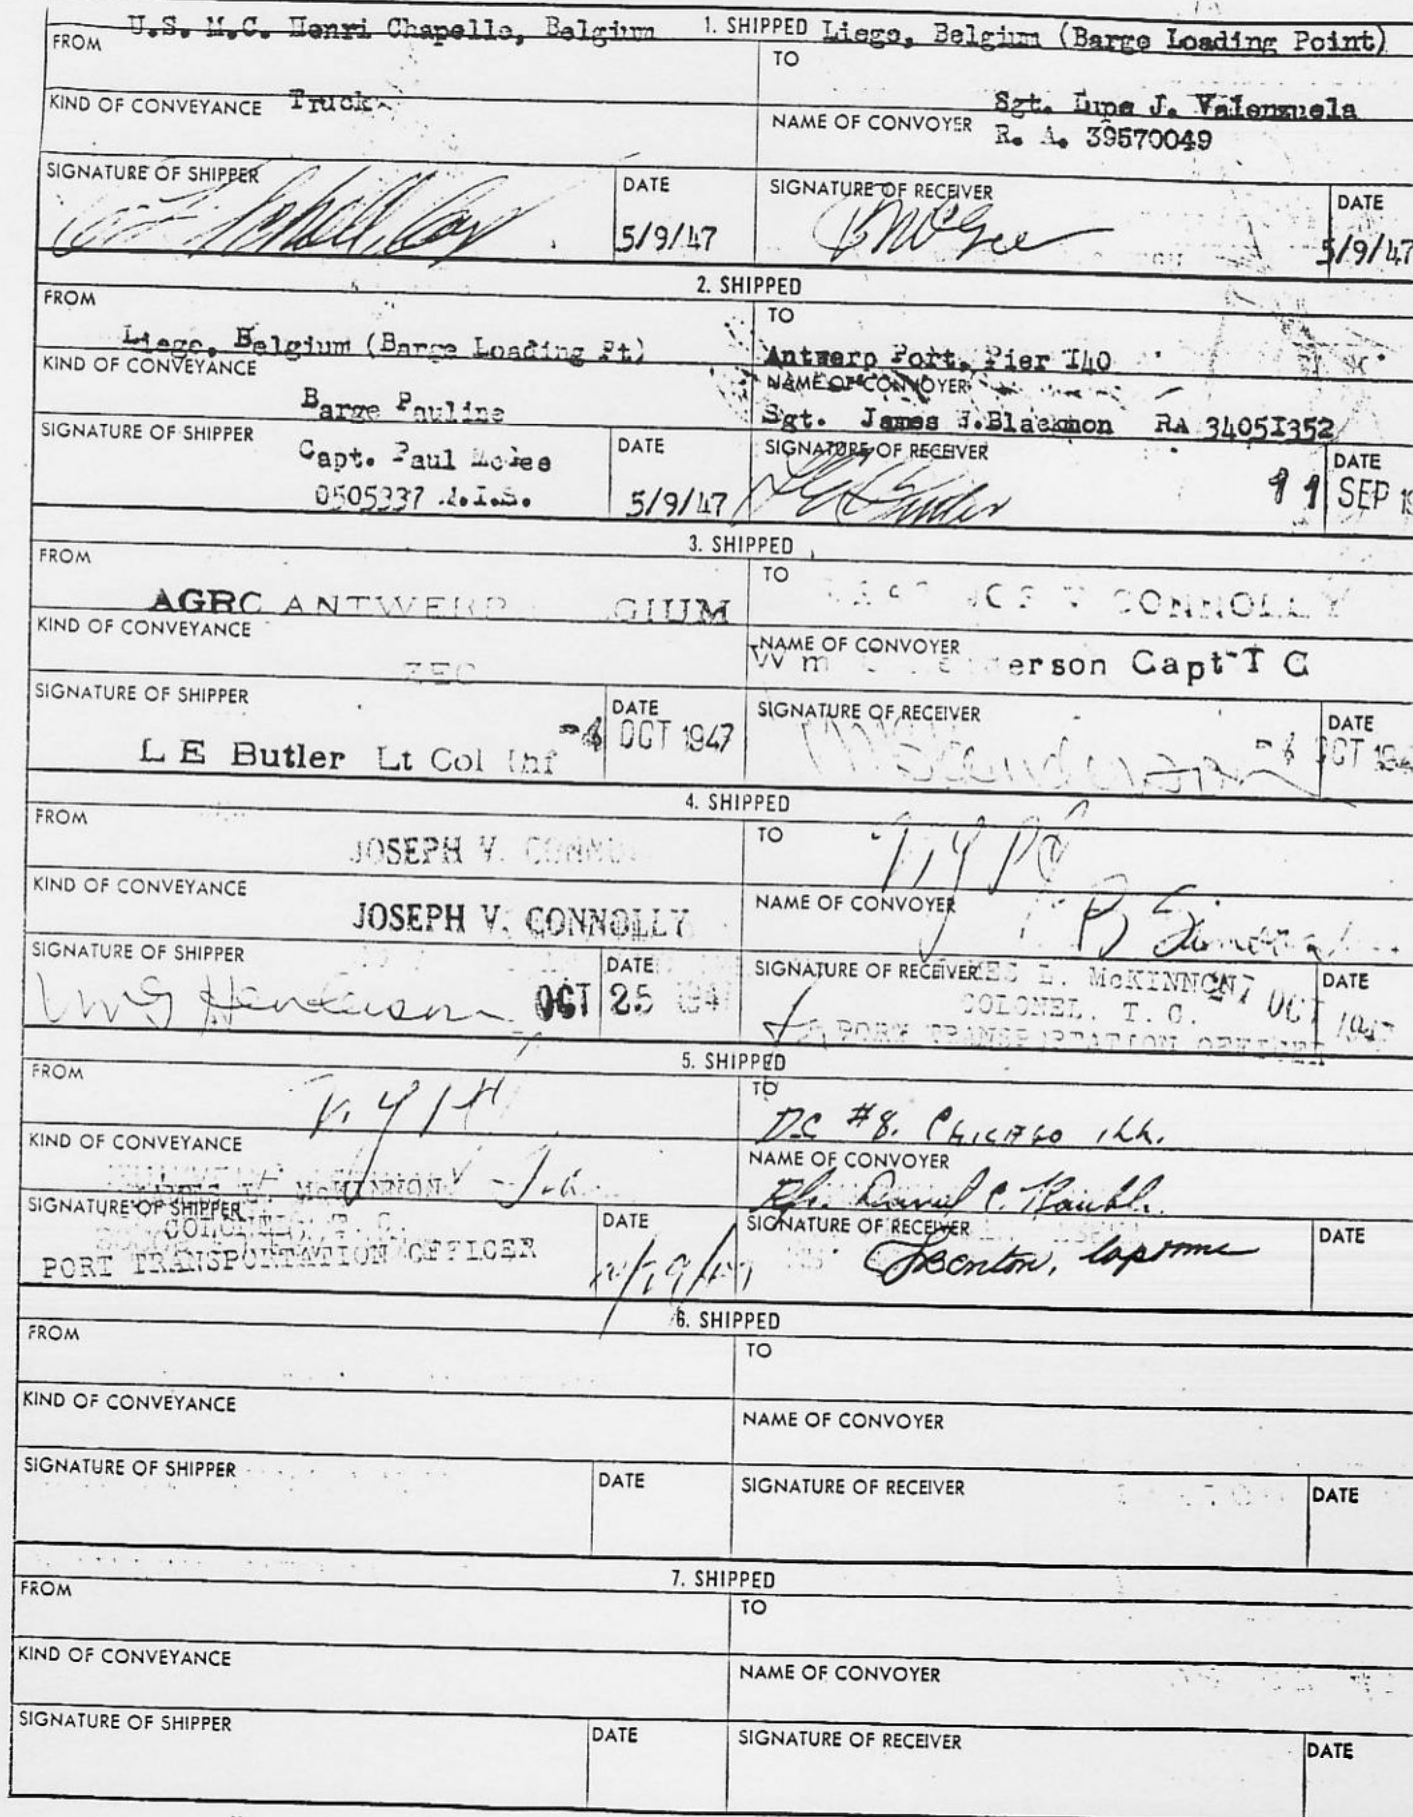 1. SHIPPED
FROM U.S. M.C. Henri Chapelle, Belgium
TO Liege, Belgium (Barge Loading Point)
KIND OF CONVEYANCE Truck
NAME OF CONVOYER Sgt. Lupe J. Valenzuela
R. A. 39570049
SIGNATURE OF SHIPPER
DATE
5/9/47
SIGNATURE OF RECEIVER
DATE
5/9/47
2. SHIPPED
FROM
Liege, Belgium (Barge Loading Pt)
TO
Antwerp Port, Pier I40
KIND OF CONVEYANCE
Barge Pauline
NAME OF CONVOYER
Sgt. James J. Blackmon RA 3405I352
SIGNATURE OF SHIPPER
Capt. Paul McGee
0505337
DATE
5/9/47
SIGNATURE OF RECEIVER
DATE
11 SEP
3. SHIPPED
FROM
AGRC ANTWERP GIUM
TO
V CONNOLLY
KIND OF CONVEYANCE
NAME OF CONVOYER
Wm erson Capt T C
SIGNATURE OF SHIPPER
L E Butler Lt Col Inf
DATE
OCT 1947
SIGNATURE OF RECEIVER
DATE
OCT
4. SHIPPED
FROM
JOSEPH V.
TO
KIND OF CONVEYANCE
JOSEPH V. CONNOLLY
NAME OF CONVOYER
SIGNATURE OF SHIPPER
Wm G Henderson
DATE
OCT 25 1947
SIGNATURE OF RECEIVER
L. McKINNON
COLONEL. T. C.
PORT TRANSPORTATION OFFICER
DATE
27 OCT 1947
5. SHIPPED
FROM
TO
D.C #8. CHICAGO ILL.
KIND OF CONVEYANCE
NAME OF CONVOYER
Daniel C.
SIGNATURE OF SHIPPER
L. McKINNON
COLONEL, T. C.
PORT TRANSPORTATION OFFICER
DATE
SIGNATURE OF RECEIVER
DATE
6. SHIPPED
FROM
TO
KIND OF CONVEYANCE
NAME OF CONVOYER
SIGNATURE OF SHIPPER
DATE
SIGNATURE OF RECEIVER
DATE
7. SHIPPED
FROM
TO
KIND OF CONVEYANCE
NAME OF CONVOYER
SIGNATURE OF SHIPPER
DATE
SIGNATURE OF RECEIVER
DATE